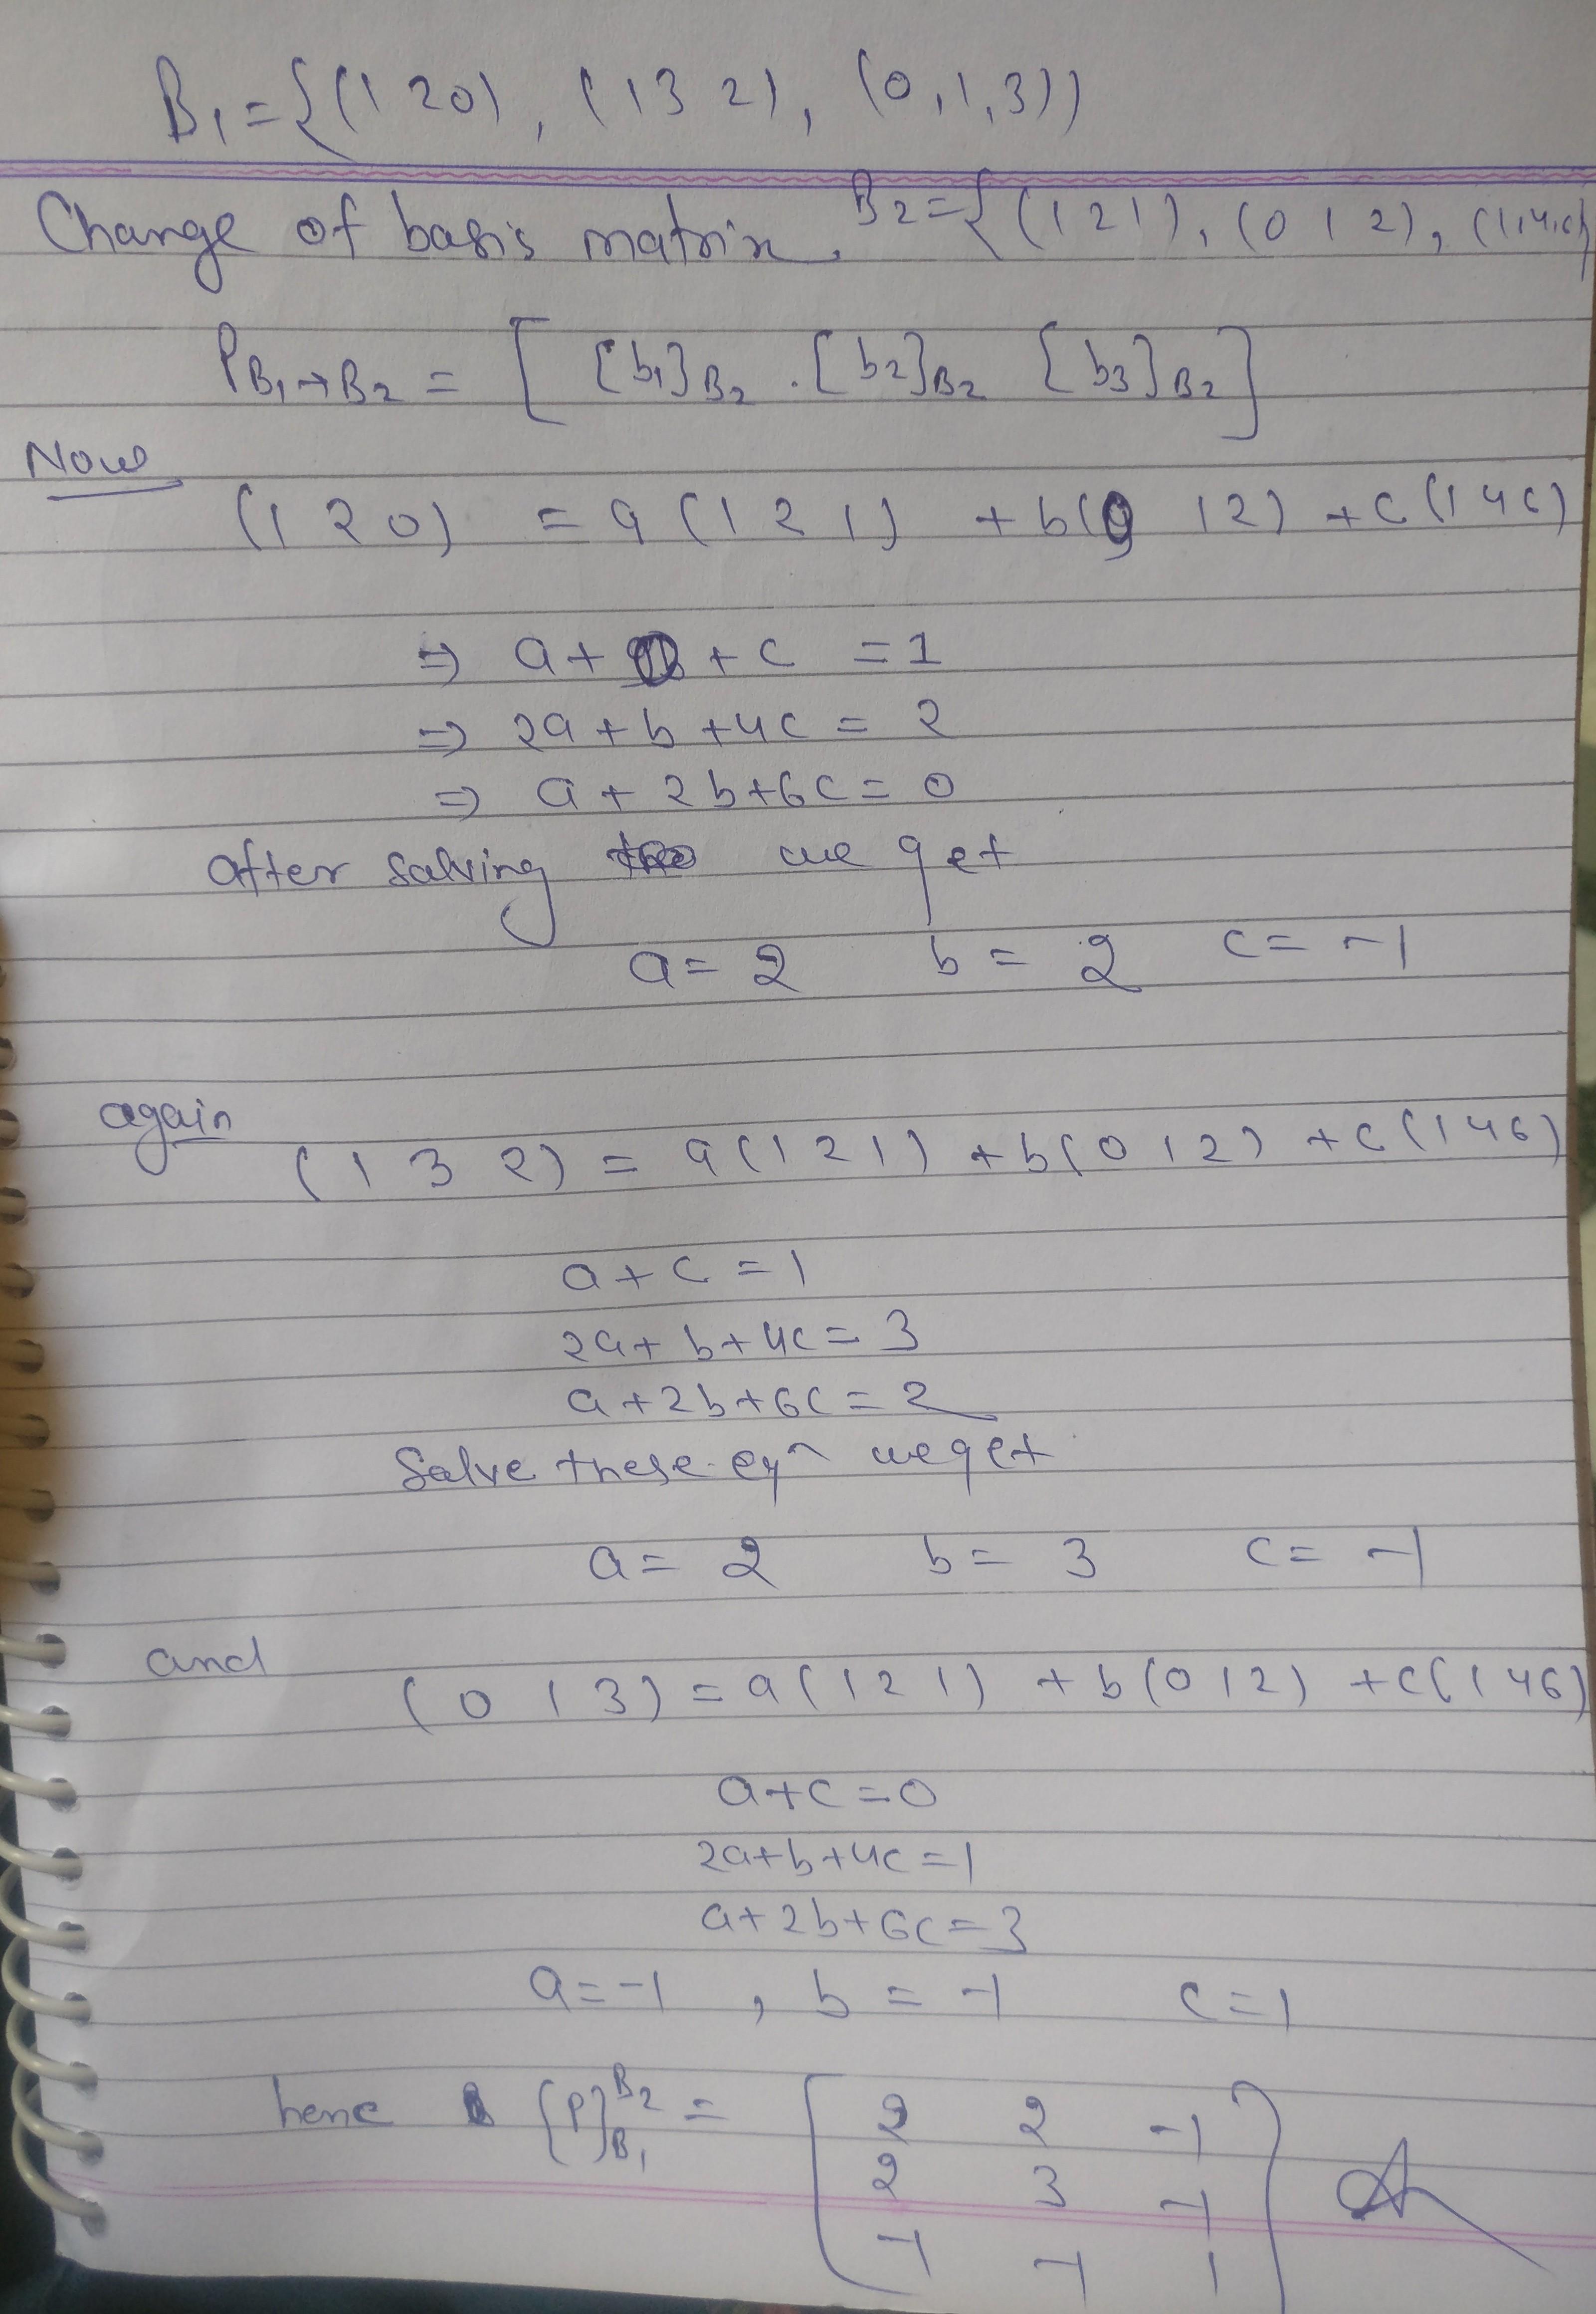 B₁ = {(1 2 0), (1 3 2), (0,1,3))
Change of basis matrix. B₂ = {(1 2 1), (0 1 2), (1,4,6)
P_B₁→B₂ = [ [b₁]_B₂ . [b₂]_B₂ [b₃]_B₂ ]
Now
(1 2 0) = a(1 2 1) + b(0 1 2) + c(1 4 6)
⇒ a + 0 + c = 1
⇒ 2a + b + 4c = 2
⇒ a + 2b + 6c = 0
After solving we get
a = 2 b = 2 c = -1
again
(1 3 2) = a(1 2 1) + b(0 1 2) + c(1 4 6)
a + c = 1
2a + b + 4c = 3
a + 2b + 6c = 2
Solve these eqⁿ we get
a = 2 b = 3 c = -1
and
(0 1 3) = a(1 2 1) + b(0 1 2) + c(1 4 6)
a + c = 0
2a + b + 4c = 1
a + 2b + 6c = 3
a = -1 , b = -1 c = 1
henc [P]_B₁^B₂ = [ 2 2 -1
2 3 -1
-1 -1 1 ]